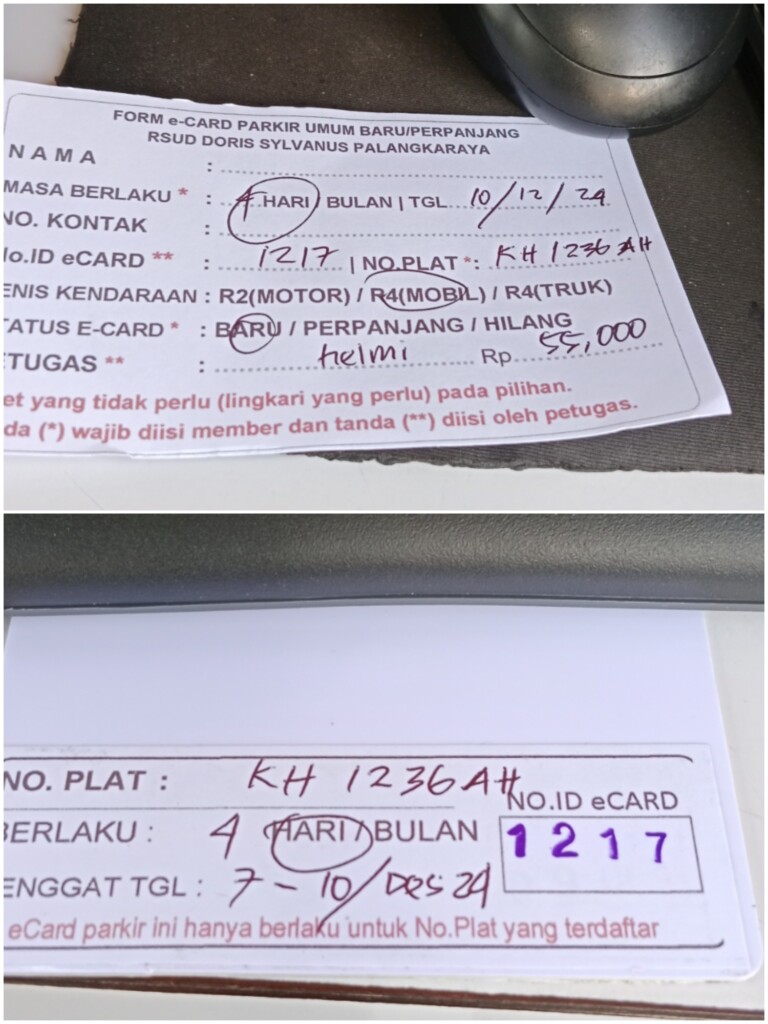 FORM e-CARD PARKIR UMUM BARU/PERPANJANG
RSUD DORIS SYLVANUS PALANGKARAYA
NAMA :
MASA BERLAKU * : 4 HARI / BULAN | TGL 10/12/24
NO. KONTAK :
No.ID eCARD ** : 1217 | NO.PLAT *: KH 1236 AH
ENIS KENDARAAN : R2(MOTOR) / R4(MOBIL) / R4(TRUK)
TATUS E-CARD * : BARU / PERPANJANG / HILANG
TUGAS ** : helmi Rp 55,000
et yang tidak perlu (lingkari yang perlu) pada pilihan.
da (*) wajib diisi member dan tanda (**) diisi oleh petugas.
NO. PLAT : KH 1236 AH
NO.ID eCARD
BERLAKU : 4 HARI / BULAN
1217
ENGGAT TGL : 7 - 10/Des 24
eCard parkir ini hanya berlaku untuk No.Plat yang terdaftar